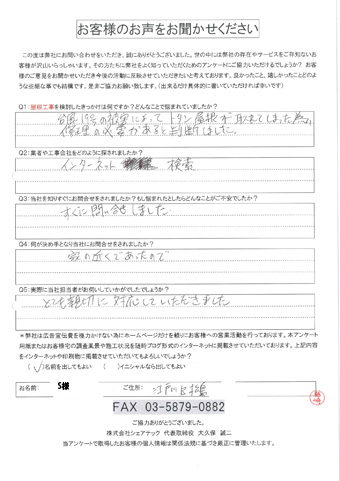 お客様のお声をお聞かせください
この度は弊社にお問い合わせをいただき、誠にありがとうございました。世の中には弊社の存在やサービスをご存知ないお
客様が沢山いらっしゃいます。その方たちに弊社をよく知っていただくためのアンケートにご協力いただけるでしょうか？お
客様のご意見をお聞かせいただき今後の活動に反映させていただきたいと考えております。良かったこと、嬉しかったことどのよ
うな些細な事でも結構です。是非ご協力お願い致します。（出来るだけ具体的に書いていただければ幸いです）
Q1：屋根工事を検討したきっかけは何ですか？どんなことで悩まれていましたか？
台風19号の被害によって トタン屋根が取れてしまった為、
修理の必要があると判断しました。
Q2：業者や工事会社をどのように探されましたか？
インターネット 検索
Q3：当社を知りすぐにお問合せをされましたか？もし悩まれたとしたらどんなことがご不安でしたか？
すぐに問い合せしました
Q4：何が決め手となり当社にお問合せをされましたか？
家の近くであったので
Q5：実際に当社担当者がお伺いしていかがでしたでしょうか？
とても親切に対応していただきました
＊弊社は広告宣伝費を極力かけない為にホームページだけを頼りにお客様への営業活動を行っております。本アンケート
用紙またはお客様宅の調査風景や施工状況を随時ブログ形式のインターネットに掲載させていただいております。上記内容
をインターネットや印刷物に掲載させていただいてもよろしいでしょうか？
（✓）名前を出してもよい （ ）イニシャルなら出してもよい
お名前： S様 ご住所： 江戸川区
FAX 03-5879-0882
ご協力ありがとうございました。
株式会社シェアテック 代表取締役 大久保 誠二
当アンケートで取得したお客様の個人情報は関係法規に基づき厳正に管理いたします。